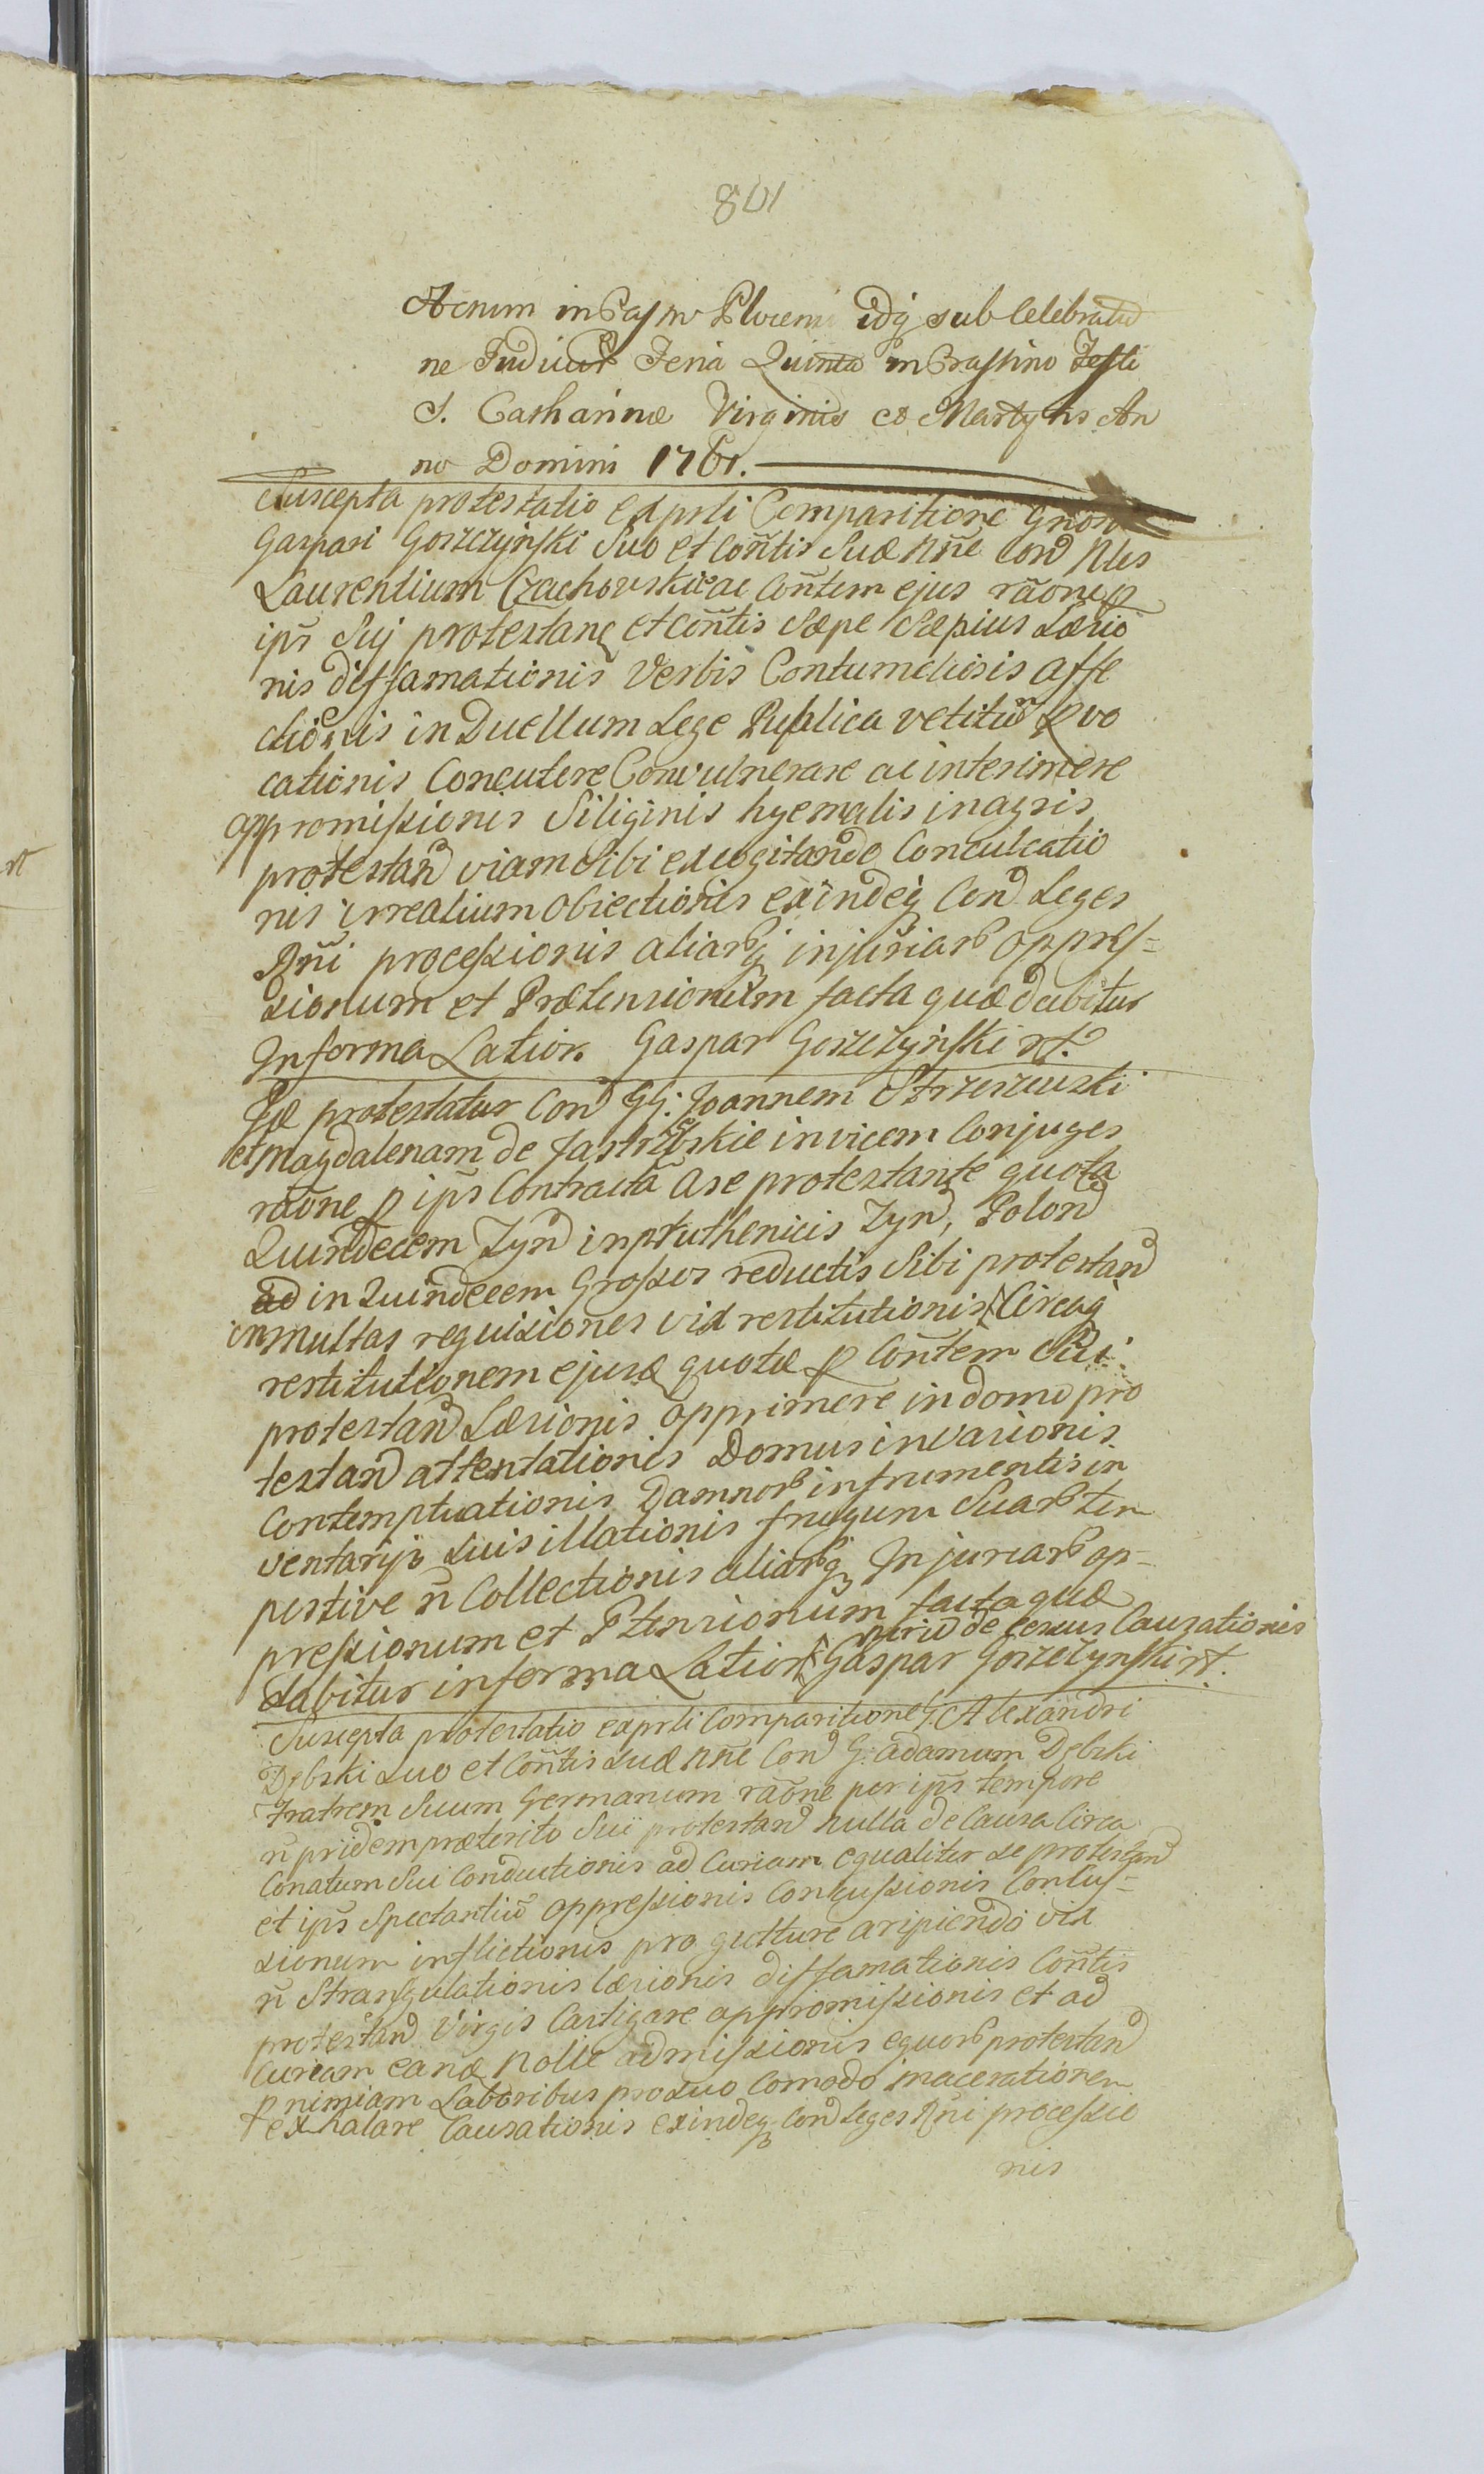 801
Actum in Castro Plocensi idq sub Celebratio
ne Judicior Feria Quinta in Crastino Festi
S. Catharinæ Virginis et Martyris An
no Domini 1761.
Suscepta protestatio ex prsti Comparitione Gnon
Gaspari Gorzczyński Suo et Coñtis Suæ Nñe Con Nles
Laurentium Czachowskie ac Coñtem ejus rãone p
ips Suj protestanę et Coñtis Sæpe Sæpius Læsio
nis diffamationis Verbis Contumeliosis affe
ctionis in Duellum Lege Publica vetitum Pvo
cationis Concutere Convulnerare ac interimere
appromissionis Siliginis hyemalis in agris
protestand viam Sibi excogitando Conculcatio
nis irrealium Obiectionis exindeq Con Leges
Rñi processionis aliarq injuriar oppres=
sionum et Prætensionum facta quæ dabitur
In forma Lation Gaspar Gorzczyński rt.
Id protestatur Con GG: Joannem Strzeszewski
et Magdalenam de Jastrzębskie invicem Conjuges
rãone p ips Contracta a se protestante quota
Quindecem Tyn in pruthenicis Tyn, Polon
ad in Quindecem Grossos reductis Sibi protestand
in multas requisiones vix restitutionis Circaq
restitutionem ejusæ quotæ p Coñtem Sui
protestand Læsionis opprimere in domo pro
testand attentationis Domus invasionis
Contemptuationis Damnor in frumentis in
ventarijs Suis illationis frugum Suar tem
pestive ñ Collectionis aliarq Injuriar op-
pressionum et Ptensionum facta quæ
nerio de cenus Causationis
dabitur in forma Lation Gaspar Gorzczyński rt.
Suscepta protestatio ex prsti Comparitione G. Alexandri
Dębski Suo et Coñtis Suæ Nñe Con G. Adamum Dębski
Fratrem Suum Germanum rãone per ips tempore
ñ pridem præterito Sui protestand nulla de Causa Circa
Conatum Sui Conductionis ad Curiam equaliter se protestand
et ips Spectantiu oppressionis Concussionis Contus=
sionum inflictionis pro gutture aripiendo vix
ñ Strangulationis læsionis diffamationis Coñtis
protestand Virgis Castigare appromissionis et ad
Curiam eanæ Nolle admissionis equor protestand
p nimiam Laboribus pro Suo Comodo macerationem
exhalare Causationis exindeq Con Leges Rñi processio
nis